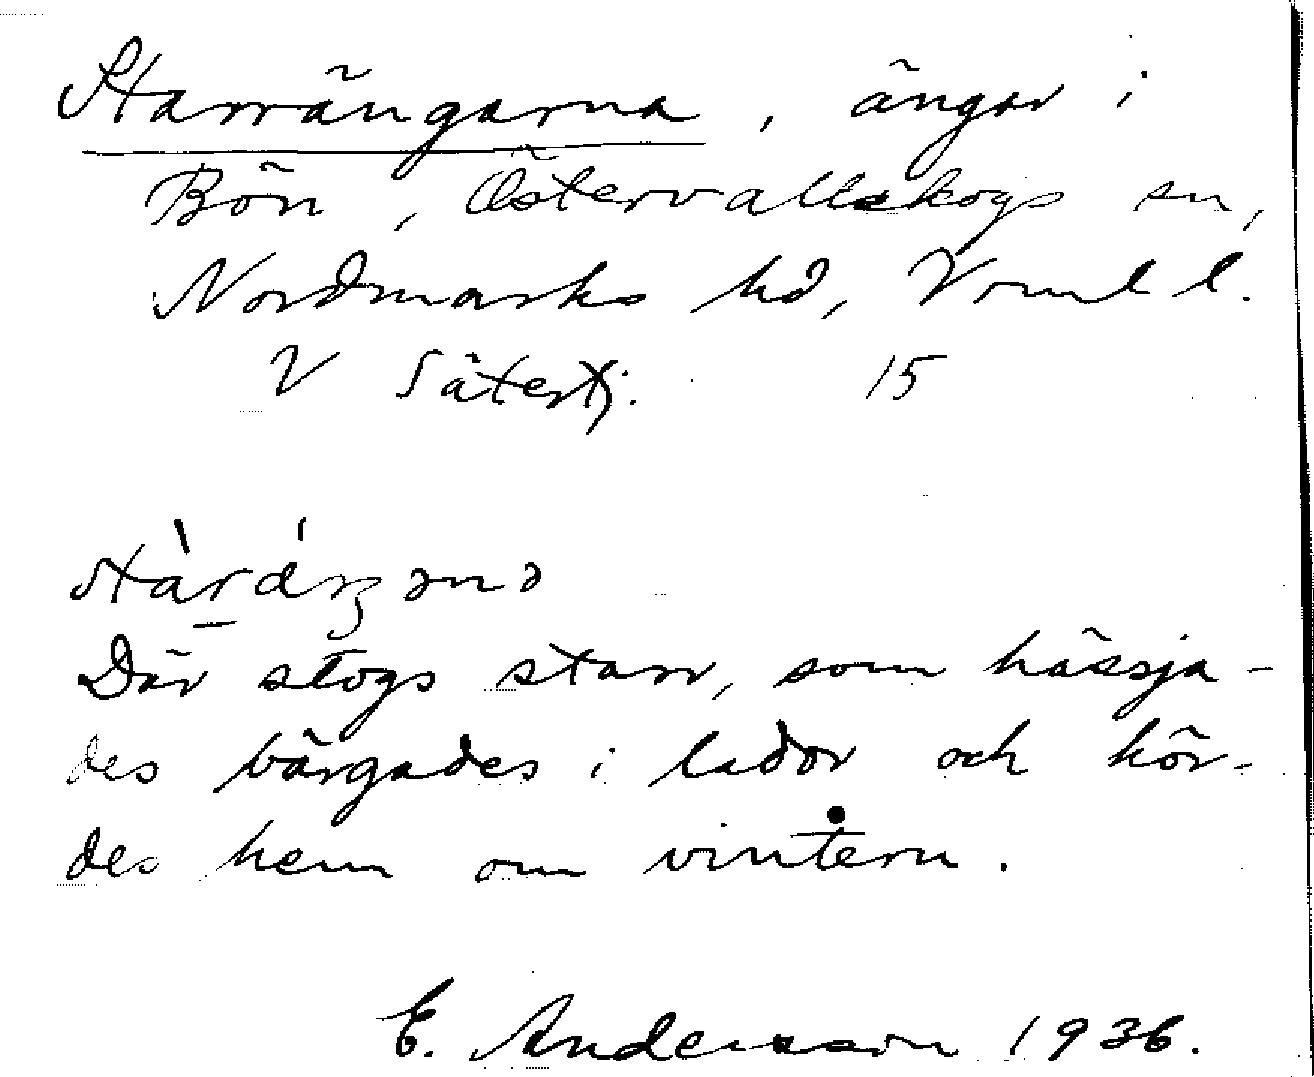 Starrängarna, ängar i
Bön, Östervallskogs sn,
Nordmarks hd, Vrml l.
V Sätertj. 15
stàráŋənə
Där slogs starr, som hässja-
des bärgades i lador och kör-
des hem om vintern.
E. Andersson 1936.